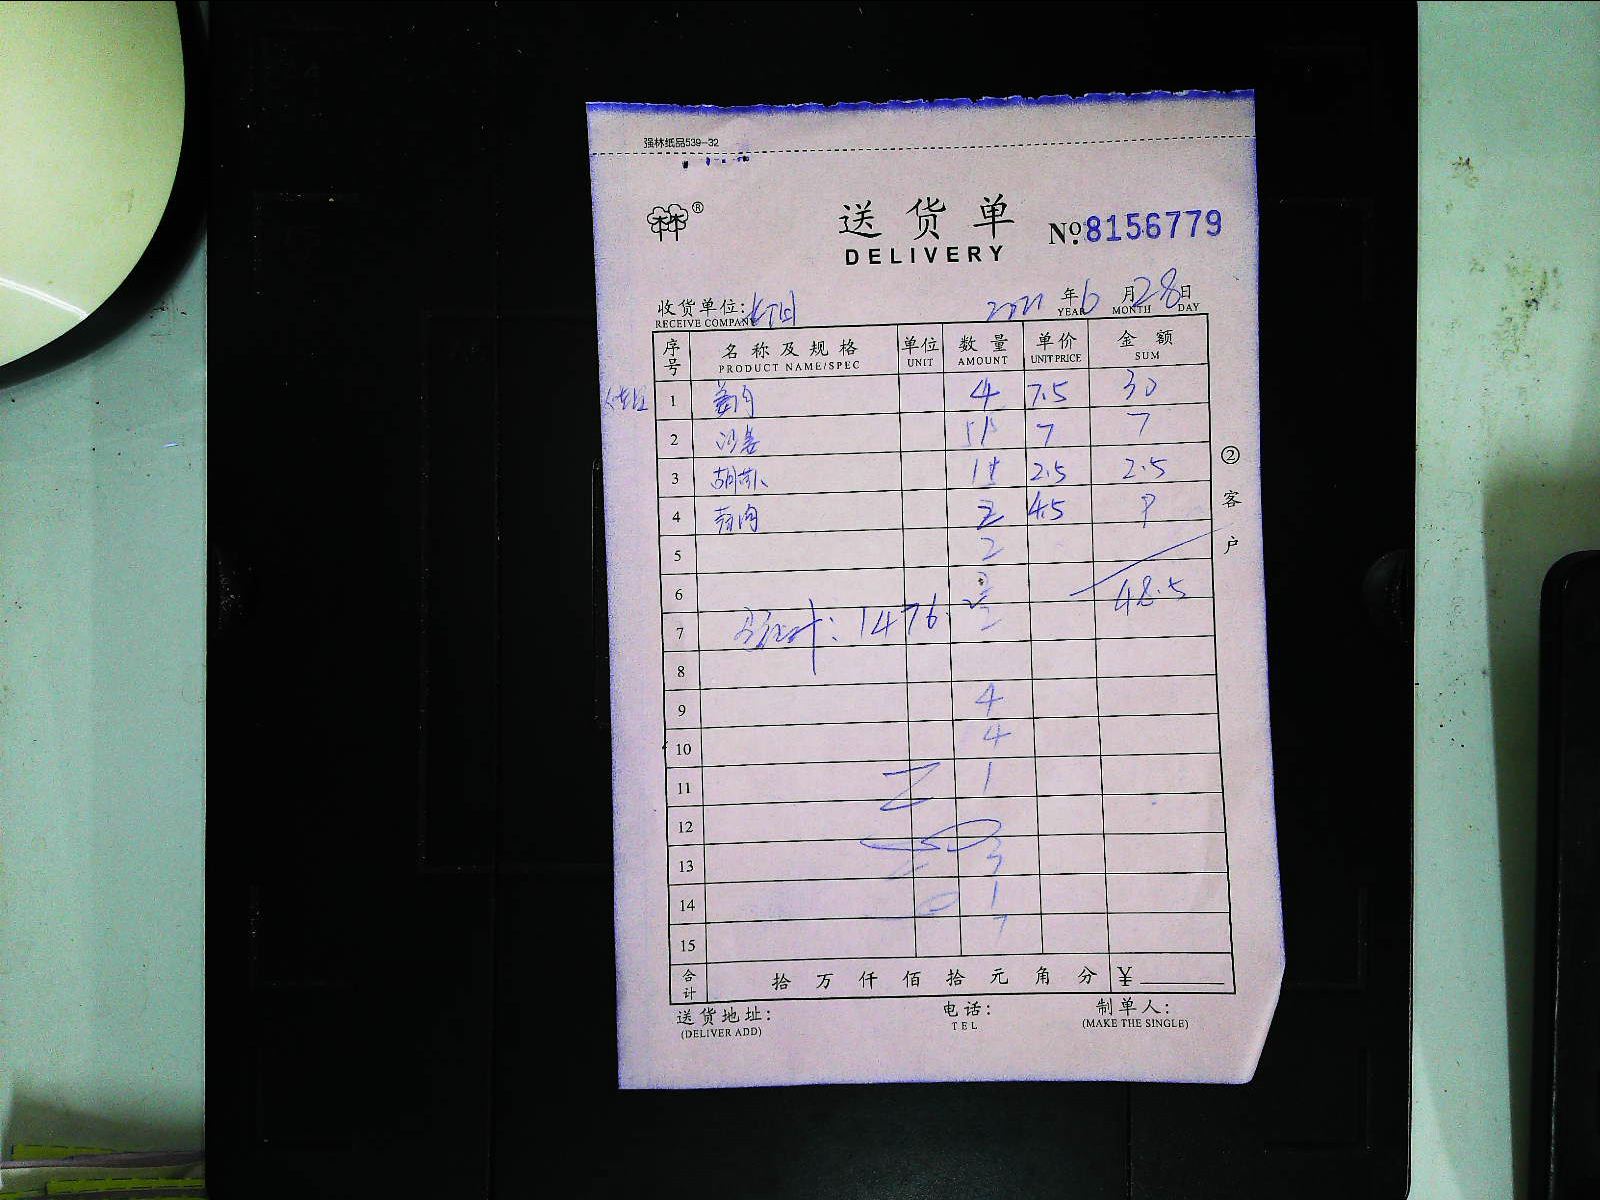 强林纸品539-32
林林®
送货单
DELIVERY
№:8156779
收货单位:
RECEIVE COMPANY
2021 年 6 月 28 日
YEAR MONTH DAY
序号 名称及规格 单位 数量 单价 金额
PRODUCT NAME/SPEC UNIT AMOUNT UNIT PRICE SUM
1 姜肉 4 7.5 30
2 沙姜 7 7
3 胡萝卜 1 2.5 2.5
4 4.5 9
5 2
6 48.5
7 1476
8
9 4
10 4
11 1
12
13 3
14 1
15
合计 拾 万 仟 佰 拾 元 角 分 ¥
送货地址:
(DELIVER ADD)
电话:
TEL
制单人:
(MAKE THE SINGLE)
②客户